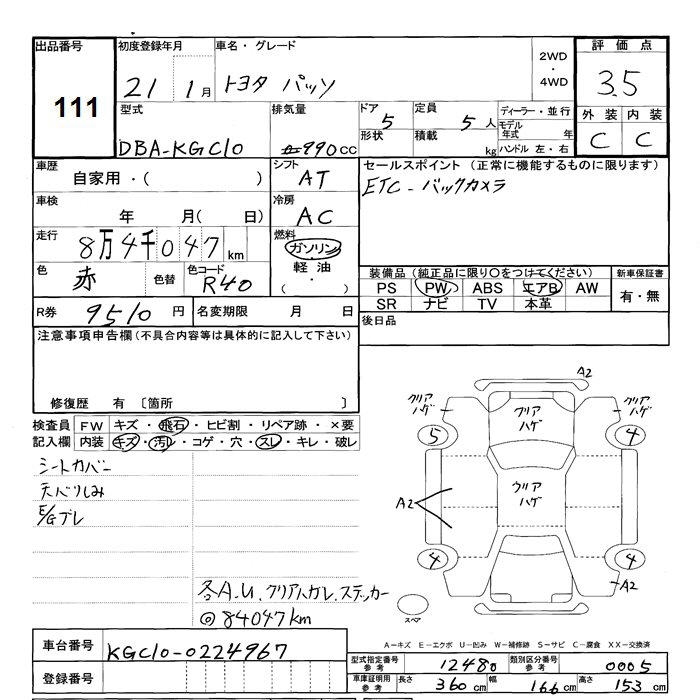 出品番号 初度登録年月 車名・グレード 2WD・4WD 評価点
111 21 1月 トヨタ パッソ 3.5
型式 排気量 ドア 5 定員 5人 ディーラー・並行 外装 内装
DBA-KGC10 990cc 形状 積載 kg モデル年式 年 C C
ハンドル 左・右
車歴 シフト セールスポイント (正常に機能するものに限ります)
自家用・( ) AT ETC-バックカメラ
車検 冷房
年 月( 日) AC
走行 燃料
8万4千047km ガソリン
軽油
( ・ )
色 色替 色コード 装備品 (純正品に限り○をつけてください) 新車保証書
赤 R40 PS PW ABS エアB AW 有・無
SR ナビ TV 本革
R券 9510円 名変期限 月 日 後日品
注意事項申告欄(不具合内容等は具体的に記入して下さい)
修復歴 有 〔箇所 〕
検査員 FW キズ・飛石・ヒビ割・リペア跡・×要
記入欄 内装 キズ・汚レ・コゲ・穴・スレ・キレ・破レ
シートカバー
天バリしみ
E/Gブレ
各A.U.クリアハガレ.ステッカー
◎84047km
A2
クリアハゲ クリアハゲ クリアハゲ
5 4
クリアハゲ
A2
4 4
A2
スペア
A-キズ E-エクボ U-凹み W-補修跡 S-サビ C-腐食 XX-交換済
車台番号 KGC10-0224967
型式指定番号 参考 12480 類別区分番号 参考 0005
登録番号
車庫証明用 参考 長さ 360cm 幅 166cm 高さ 153cm